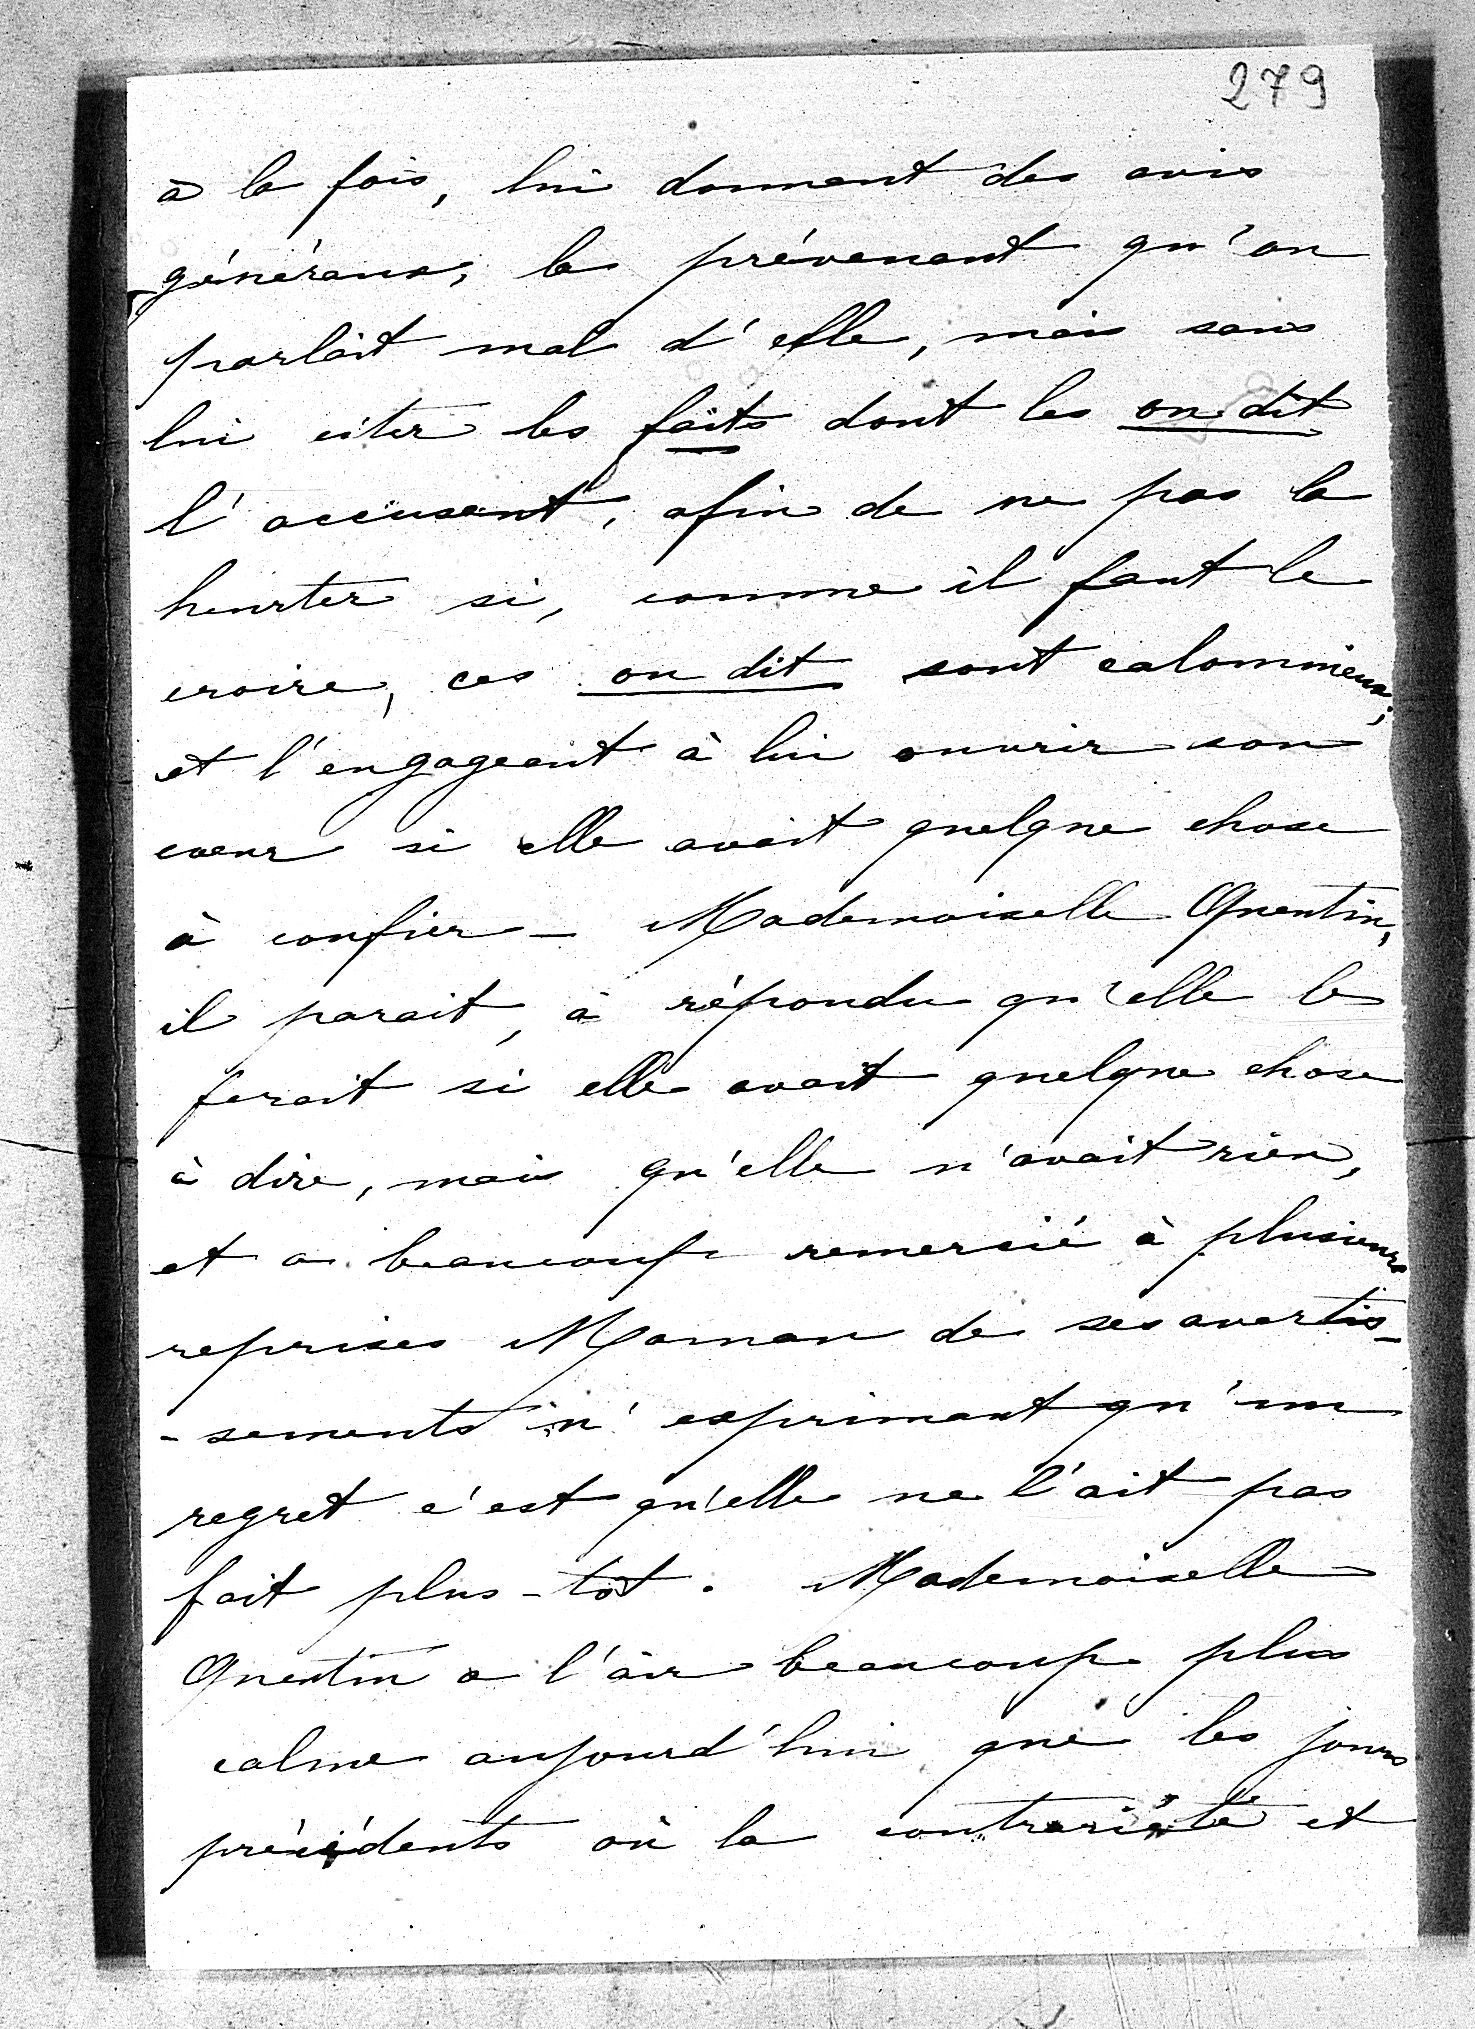 279
à la fois, lui donnant des avis
généraux, la prévenant qu'on
parlait mal d'elle, mais sans
lui citer les faits dont les on dit
l'accusent, afin de ne pas la
heurter si, comme il faut le
croire, ces on dit sont calomnieux;
et l'engageant à lui ouvrir son
cœur si elle avait quelque chose
à confier - Mademoiselle Quentin,
il parait, a répondu qu'elle le
ferait si elle avait quelque chose
à dire, mais qu'elle n'avait rien,
et a beaucoup remercié à plusieurs
reprises Maman de ses avertis-
-sements n'exprimant qu'un
regret c'est qu'elle ne l'ait pas
fait plus-tôt. Mademoiselle
Quentin a l'air beaucoup plus
calme aujourd'hui que les jours
précédents où la contrariété et